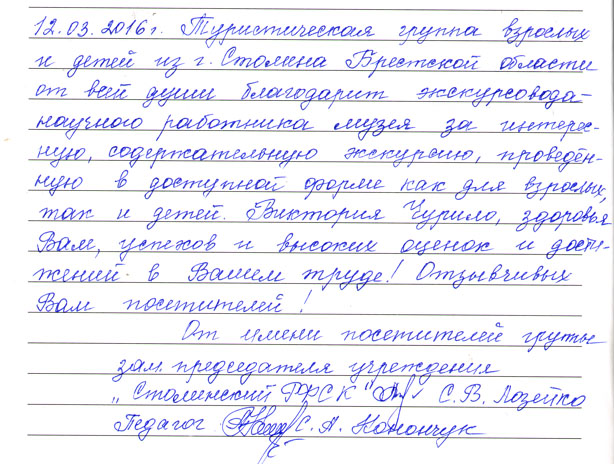 12.03.2016г. Туристическая группа взрослых
и детей из г. Столина Брестской области
от всей души благодарит экскурсовода-
научного работника музея за интерес-
ную, содержательную экскурсию, проведён-
ную в доступной форме как для взрослых,
так и детей. Виктория Чурило, здоровья
Вам, успехов и высоких оценок и дости-
жений в Вашем труде! Отзывчивых
Вам посетителей!
От имени посетителей группы
зам. председателя учреждения
„Столинский РФСК" С. В. Лозейко
Педагог С. А. Конончук